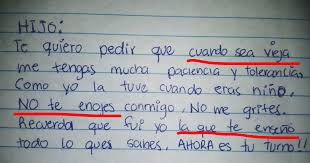 HIJO:
Te quiero pedir que cuando sea vieja
me tengas mucha paciencia y tolerancia.
Como yo la tuve cuando eras niño.
NO te enojes conmigo. NO me grites.
Recuerda que fui yo la que te enseño
todo lo que sabes. AHORA es tu turno!!